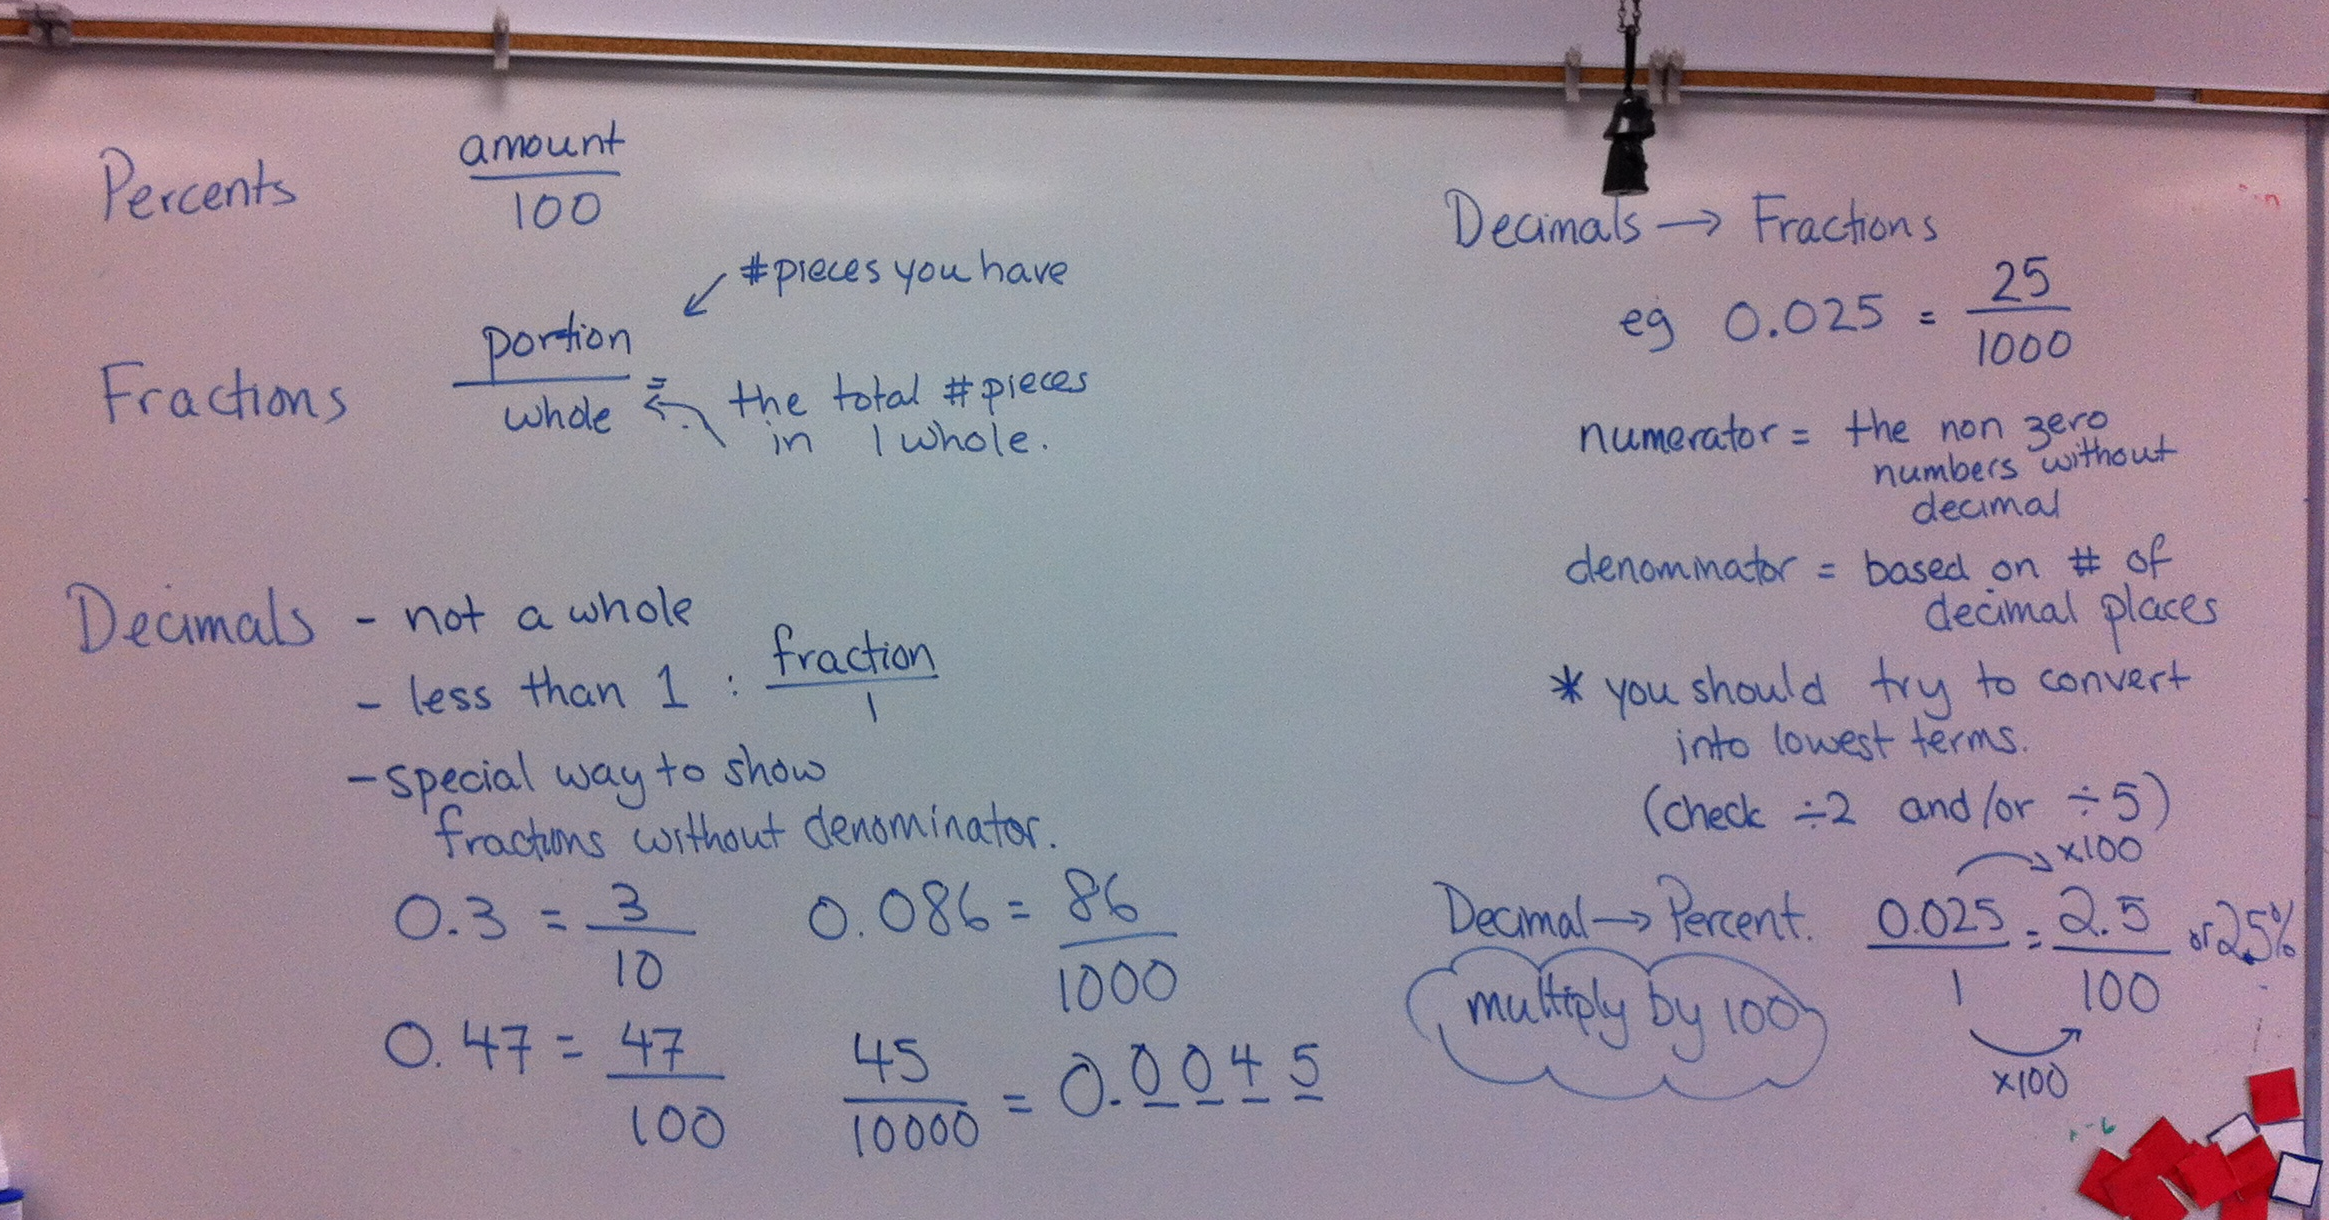 Percents amount
100
#pieces you have
Fractions portion
whole = the total #pieces
in 1 whole.
Decimals - not a whole
- less than 1 : fraction
1
- special way to show
fractions without denominator.
0.3 = 3/10 0.086 = 86/1000
0.47 = 47/100 45/10000 = 0.0045
Decimals → Fractions
eg 0.025 = 25/1000
numerator = the non zero
numbers without
decimal
denominator = based on # of
decimal places
* you should try to convert
into lowest terms.
(check ÷2 and/or ÷5)
x100
Decimal → Percent. 0.025/1 = 2.5/100 or 2.5%
multiply by 100
x100
in